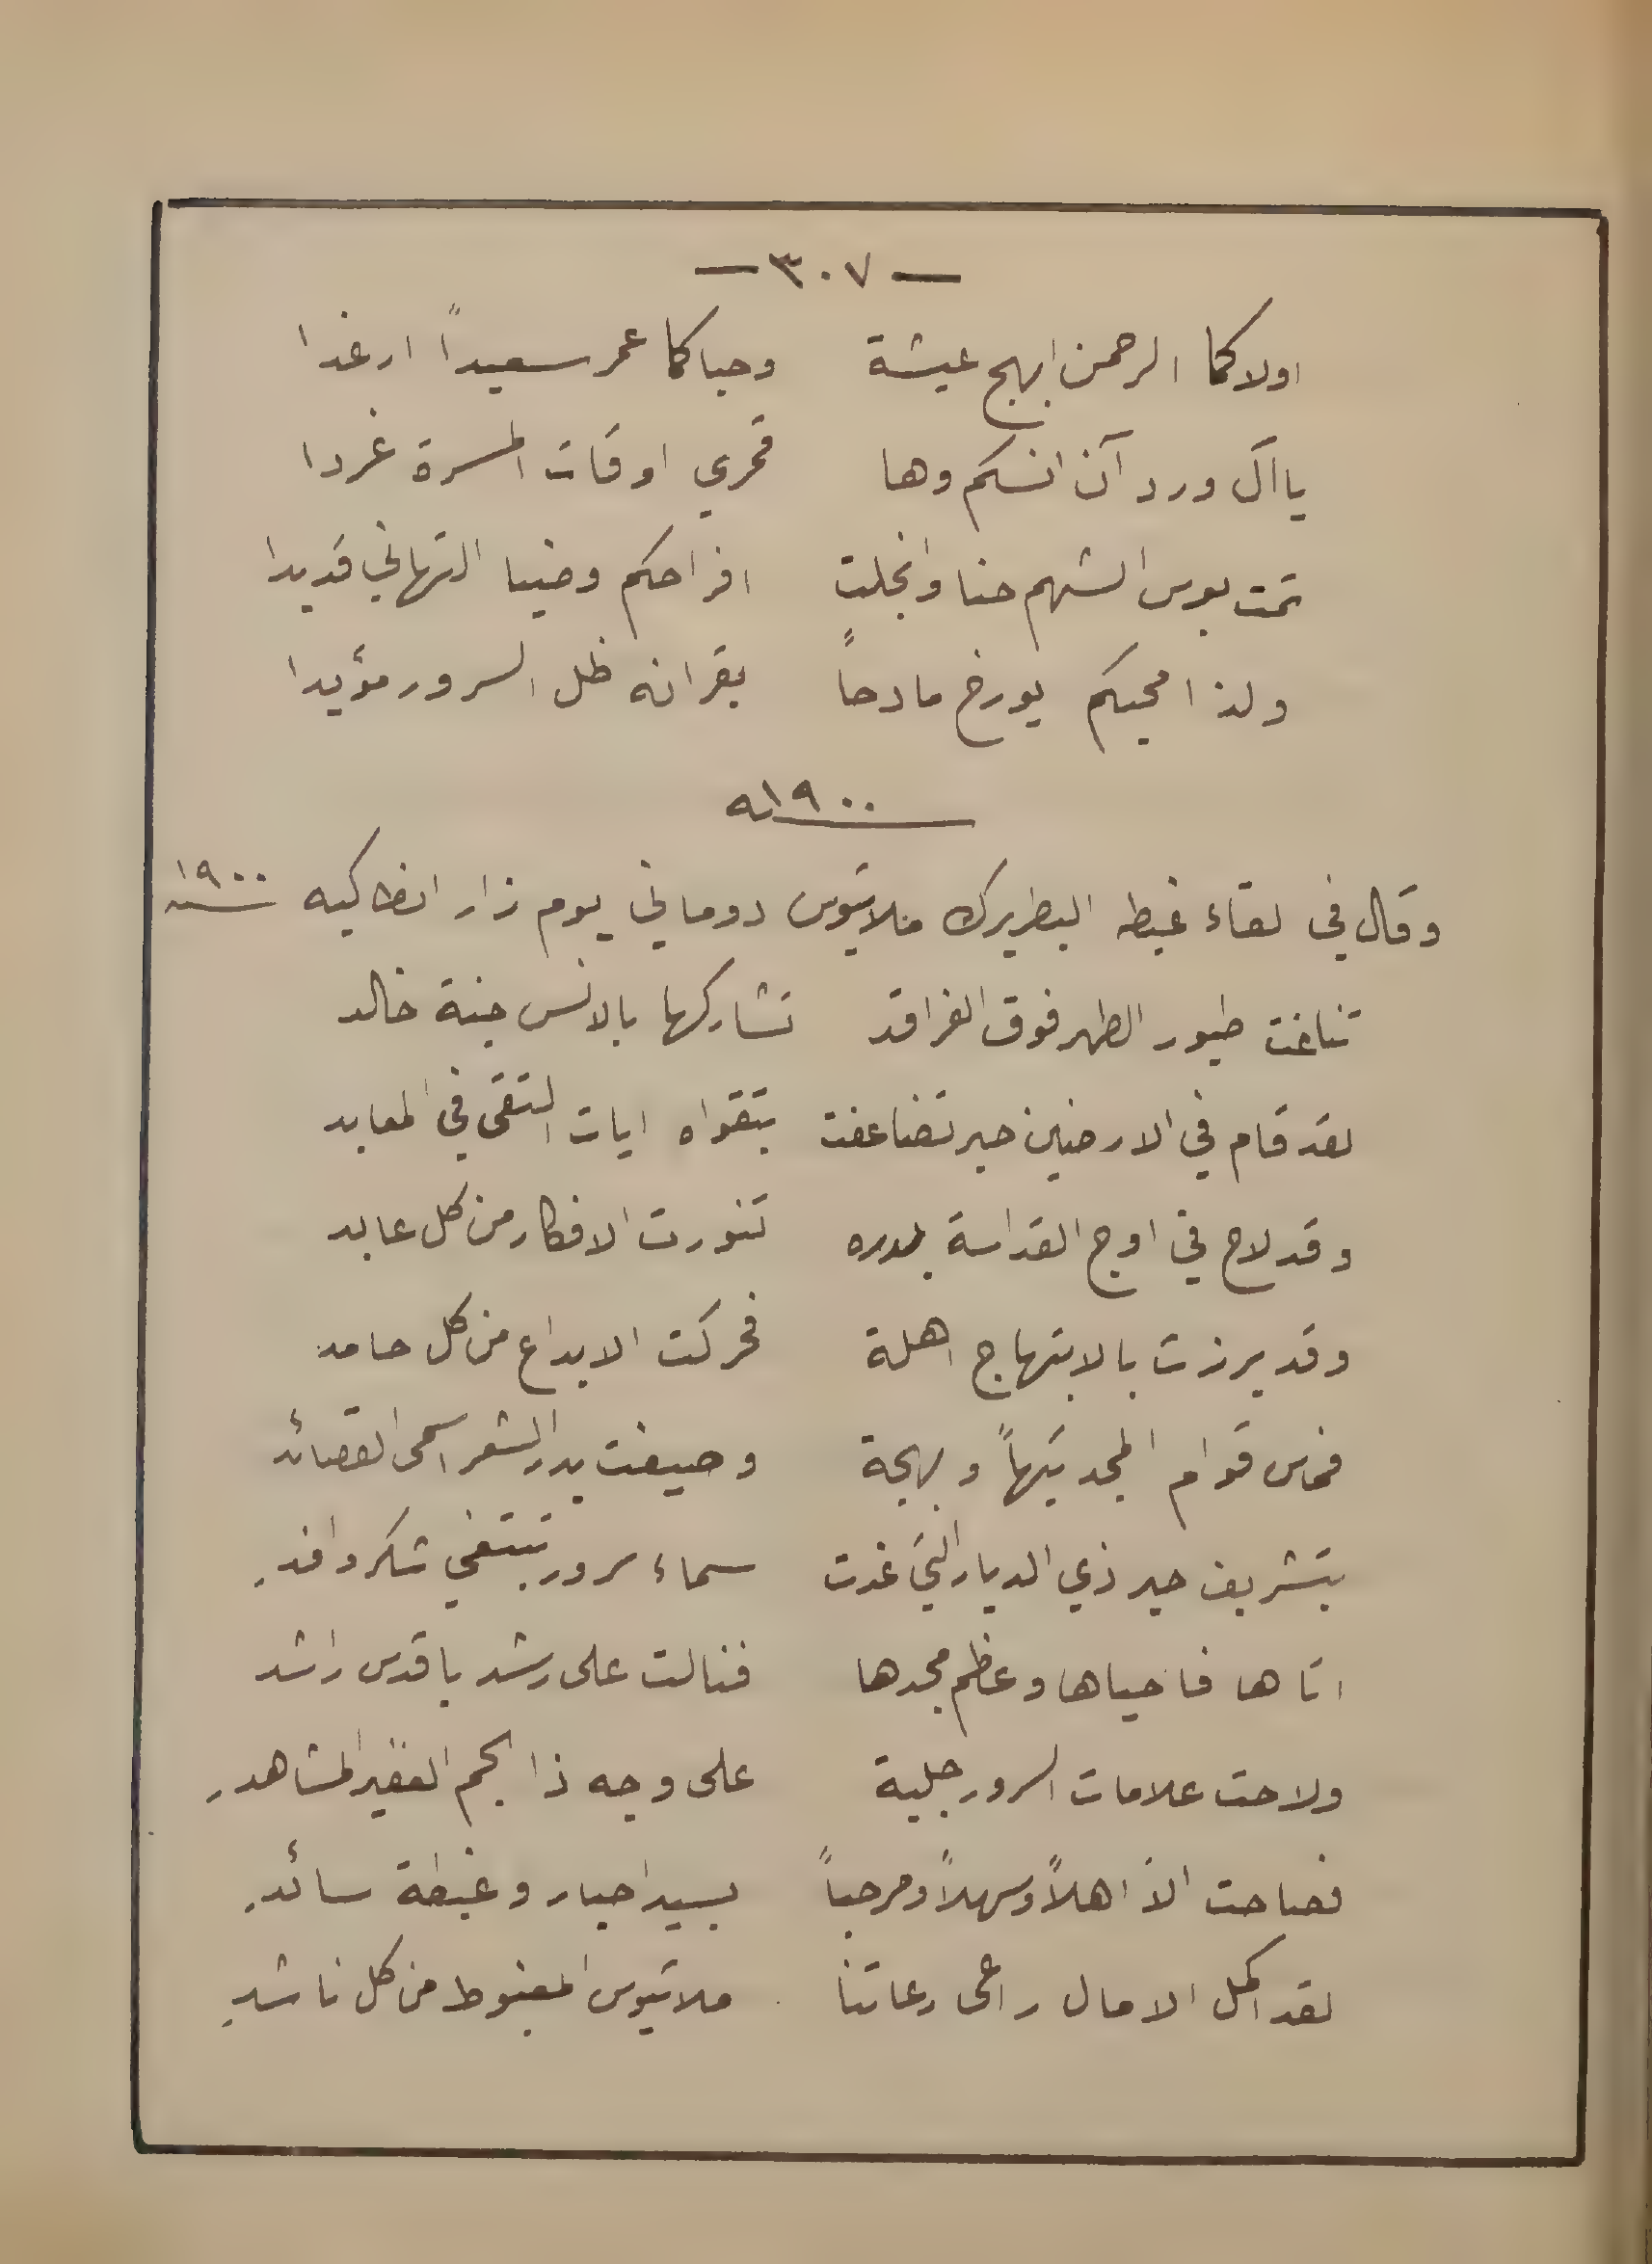 — ٣٠٧ —
اولاكما الرحمن ابهج عيشة وحباكما عمر سعيداً ارغدا
يا آل ورد آن انسكم وها قمري اوقات المسرة غردا
تمت بعرس الشهم حنا وانجلت افراحكم وضيا التهاني قد بدا
ولذا محبكم يورخ مادحاً بقرانه ظل السرور مؤيدا
سنة ١٩٠٠
وقال في لقاء غبطه البطريرك ملاتيوس دوماني يوم زار انطاكيه سنة ١٩٠٠
تناغت طيور الطهر فوق الفراقد تشاركها بالانس جنة خالد
لقد قام في الارضين حبر تضاعفت بتقواه ايات التقى في المعابد
وقد لاح في اوج القداسة بدره تنورت الافكار من كل عابد
وقد برزت بالابتهاج اهلة فحركت الابداع من كل حامد
فماس قوام المجد تيهاً وبهجة وصيغت بدر الشعر اسمى القصائد
بتشريف حبر ذي الديار التي غدت سماء سرور تبتغي شكر وافد
اتاها فاحياها وعظم مجدها فنالت على رشد باقدس راشد
ولاحت علامات السرور جلية على وجه ذا الجم الغفير المشاهد
فصاحت الا اهلاً وسهلاً ومرحباً بسيد احبار وغبطة سائد
لقد اكمل الامال راعى رعاتنا ملاتيوس المغبوط من كل ناشد